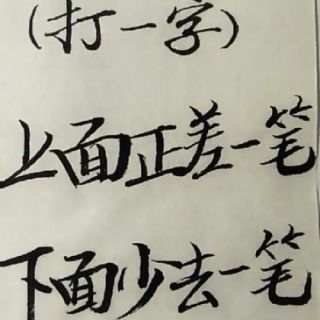 (打一字)
上面正差一笔
下面少去一笔